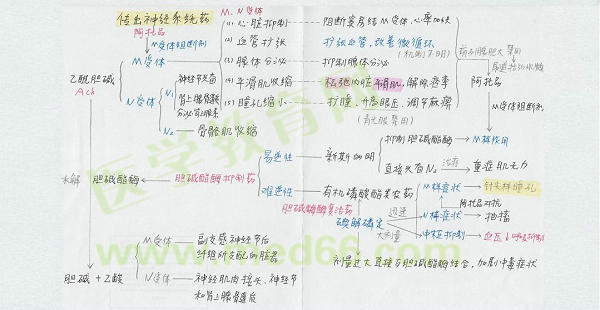 传出神经系统药
阿托品
M受体阻断剂
M受体
乙酰胆碱
Ach
N受体
N₁
神经节兴奋
肾上腺髓质
分泌肾上腺素
N₂
骨骼肌收缩
M、N受体
(1) 心脏抑制
阻断窦房结M受体,心率加快
(2) 血管扩张
扩张血管,改善微循环
(机制不明)
(3) 腺体分泌
抑制腺体分泌
(4) 平滑肌收缩
松弛内脏平滑肌,解除痉挛
(5) 瞳孔缩小
扩瞳、升高眼压、调节麻痹
(青光眼禁用)
前列腺肥大禁用
阿托品
M受体阻断剂
水解
胆碱酯酶
胆碱酯酶抑制药
易逆性
新斯的明
抑制胆碱酯酶
M样作用
直接兴奋N₂
治疗
重症肌无力
难逆性
有机磷酸酯类农药
M样症状
针尖样瞳孔
阿托品对抗
胆碱酯酶复活药
碘解磷定
迅速
N样症状
抽搐
大剂量
中枢抑制
血压↓呼吸抑制
剂量过大直接与胆碱酯酶结合,加剧中毒症状
胆碱+乙酸
M受体
副交感神经节后
纤维所支配的脏器
N受体
神经肌肉接头、神经节
和肾上腺髓质
医学教育网
www.med66.com